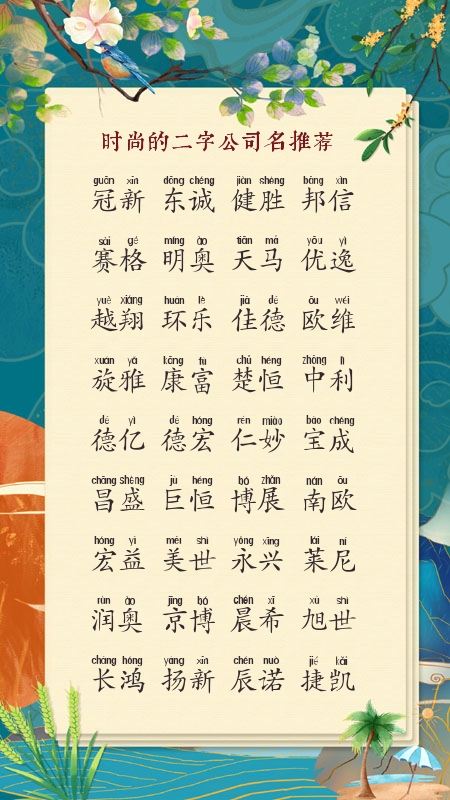 时尚的二字公司名推荐
guān xīn dōng chéng jiàn shèng bāng xìn
冠新 东诚 健胜 邦信
sài gé míng ào tiān mǎ yōu yì
赛格 明奥 天马 优逸
yuè xiáng huán lè jiā dé ōu wéi
越翔 环乐 佳德 欧维
xuán yǎ kāng fù chǔ héng zhōng lì
旋雅 康富 楚恒 中利
dé yì dé hóng rén miào bǎo chéng
德亿 德宏 仁妙 宝成
chāng shèng jù héng bó zhǎn nán ōu
昌盛 巨恒 博展 南欧
hóng yì měi shì yǒng xīng lái ní
宏益 美世 永兴 莱尼
rùn ào jīng bó chén xī xù shì
润奥 京博 晨希 旭世
cháng hóng yáng xīn chén nuò jié kǎi
长鸿 扬新 辰诺 捷凯